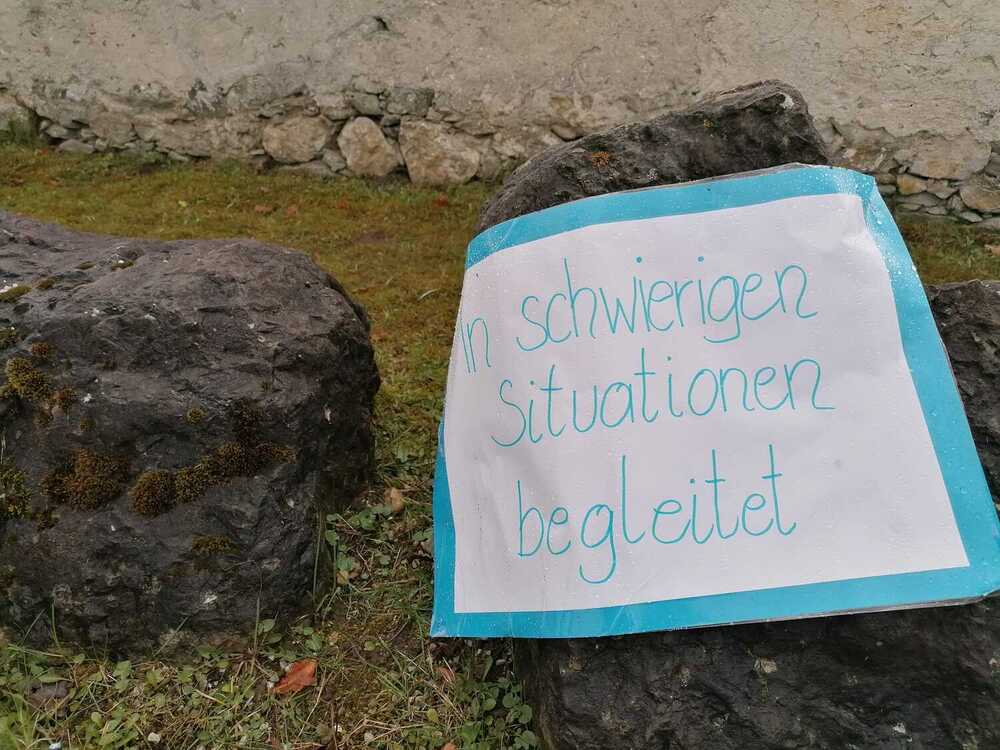 In schwierigen
Situationen
begleitet